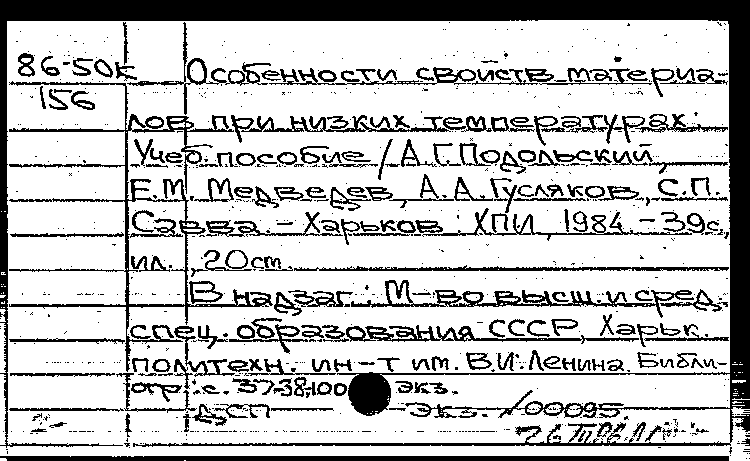 86-50к Особенности свойств материа-
156
лов при низких температурах:
Учеб. пособие / А.Г. Подольский,
Е.М. Медведев, А.А. Гусляков, С.П.
Савва. - Харьков: ХПИ, 1984. - 39с,
ил., 20ст.
В надзаг.: М-во высш. и сред.
спец. образования СССР, Харьк.
политехн. ин-т им. В.И. Ленина. Библи-
огр.: с. 37-38, 100 экз.
2- ДСП Экз. №00095.